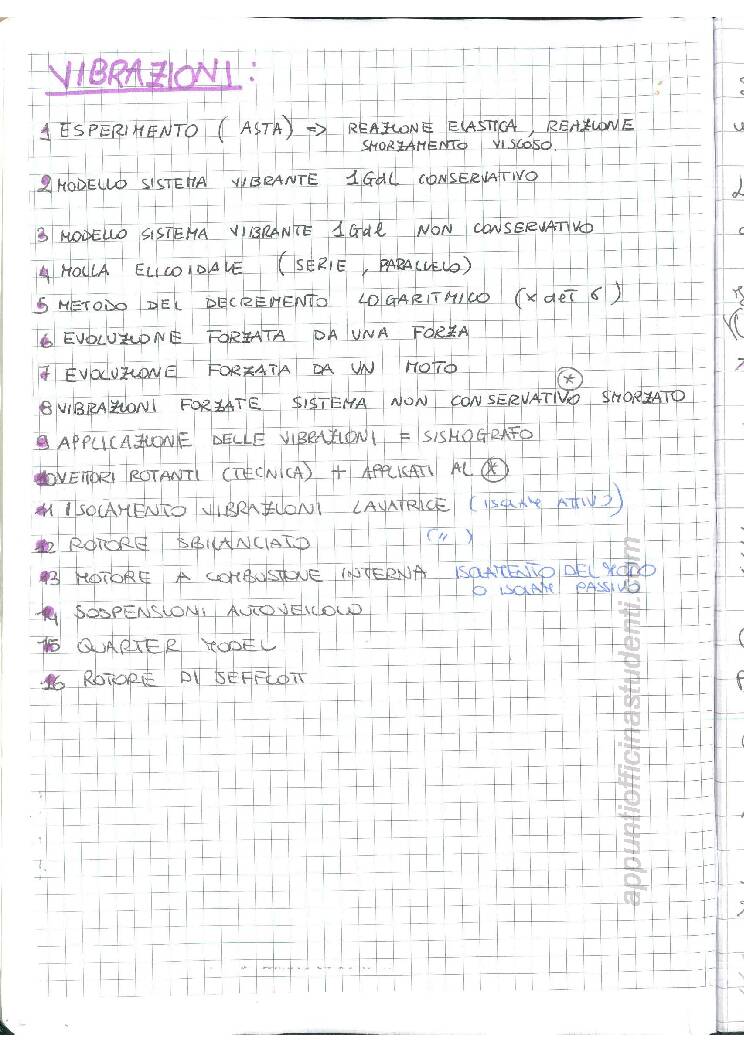 VIBRAZIONI:
1 ESPERIMENTO ( ASTA) => REAZIONE ELASTICA, REAZIONE
SMORZAMENTO VISCOSO.
2 MODELLO SISTEMA VIBRANTE 1Gdl CONSERVATIVO
3 MODELLO SISTEMA VIBRANTE 1Gdl NON CONSERVATIVO
4 MOLLA ELICOIDALE (SERIE, PARALLELO)
5 METODO DEL DECREMENTO LOGARITMICO (x det 6)
6 EVOLUZIONE FORZATA DA UNA FORZA
7 EVOLUZIONE FORZATA DA UN MOTO
8 VIBRAZIONI FORZATE SISTEMA NON CONSERVATIVO SMORZATO (*)
9 APPLICAZIONE DELLE VIBRAZIONI = SISMOGRAFO
10 VETTORI ROTANTI (TECNICA) + APPLICATI AL (*)
11 ISOLAMENTO VIBRAZIONI LAVATRICE (ISOLAM ATTIVO)
12 ROTORE SBILANCIATO ( " )
13 MOTORE A COMBUSTIONE INTERNA ISOLAMENTO DEL MOTO
O ISOLAM PASSIVO
14 SOSPENSIONI AUTOVEICOLO
15 QUARTER MODEL
16 ROTORE DI JEFFCOTT
appuntiofficinastudenti.com